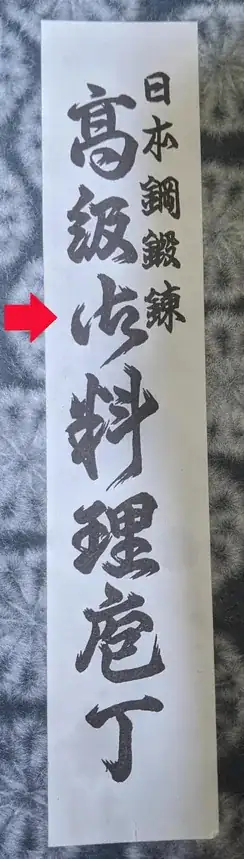 日本鋼鍛錬
高級御料理庖丁